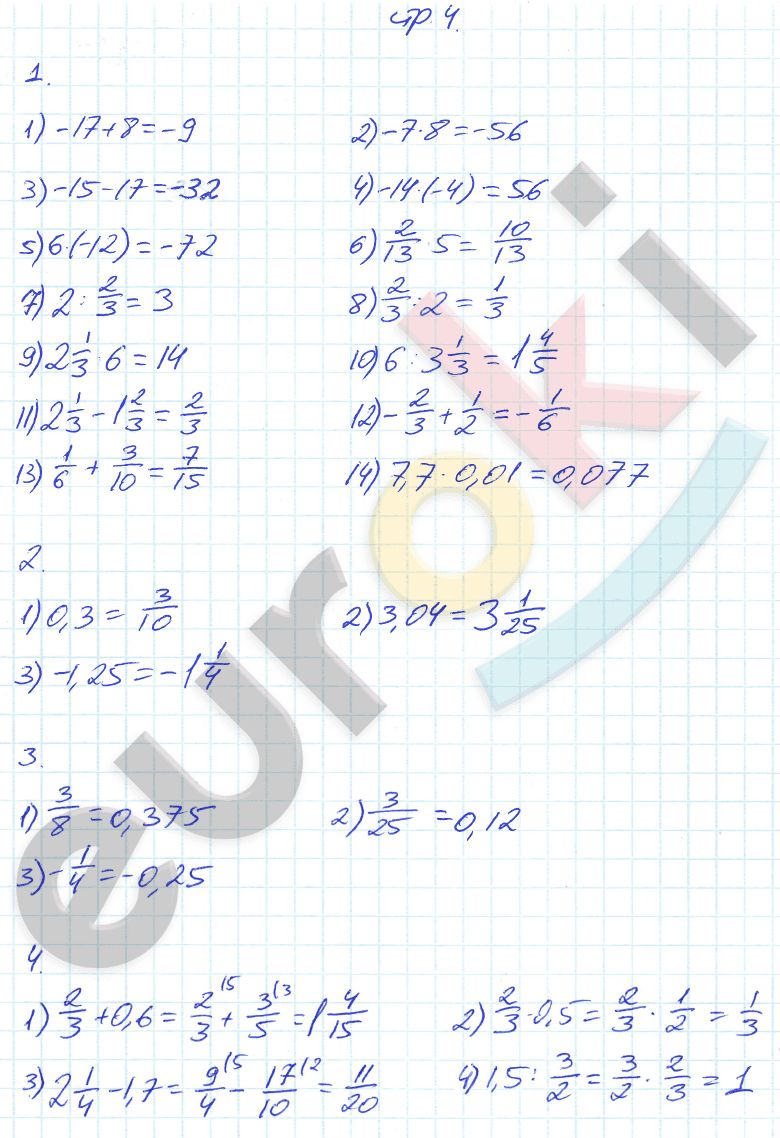 стр. 4.
1.
1) -17+8=-9 2) -7·8=-56
3) -15-17=-32 4) -14·(-4)=56
5) 6·(-12)=-72 6) 2/13·5=10/13
7) 2:2/3=3 8) 2/3:2=1/3
9) 2 1/3·6=14 10) 6:3 1/3=1 4/5
11) 2 1/3-1 2/3=2/3 12) -2/3+1/2=-1/6
13) 1/6+3/10=7/15 14) 7,7·0,01=0,077
2.
1) 0,3=3/10 2) 3,04=3 1/25
3) -1,25=-1 1/4
3.
1) 3/8=0,375 2) 3/25=0,12
3) -1/4=-0,25
4.
1) 2/3+0,6=2/3(5+3/5(3=1 4/15 2) 2/3·0,5=2/3·1/2=1/3
3) 2 1/4-1,7=9/4(5-17/10(2=11/20 4) 1,5:3/2=3/2·2/3=1
euroki